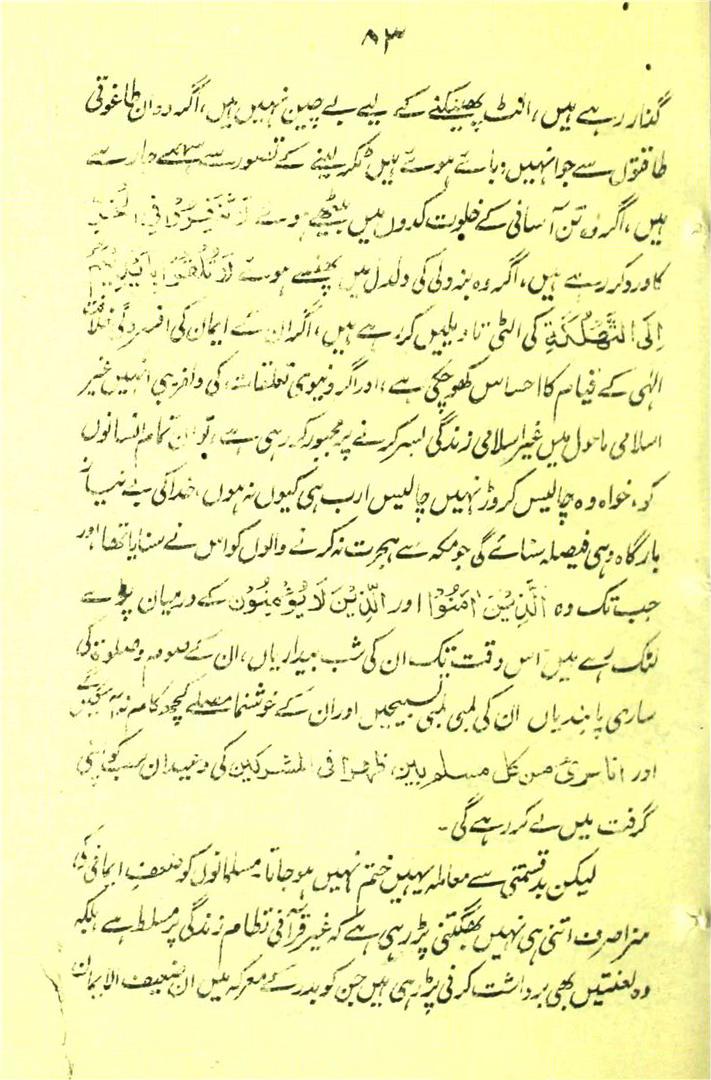 ۸۳
گذار رہے ہیں، الٹ پھینکنے کے لیے بے چین نہیں ہیں، اگر وہ ان طاغوتی
طاقتوں سے جو انہیں دبائے ہوئے ہیں ٹکر لینے کے تصور سے سہمے جارہے
ہیں، اگر وہ تن آسانی کے خلوت کدوں میں بیٹھے ہوئے لَا تَنْفِرُوْا فِی الْحَرِّ
کا ورد کر رہے ہیں، اگر وہ بزدلی کی دلدل میں پھنسے ہوئے لَا تُلْقُوْا بِاَیْدِیْکُمْ
اِلَی التَّھْلُکَۃِ کی الٹی تاویلیں کر رہے ہیں، اگر ان کے ایمان کی افسردگی خلافت
الٰہی کے قیام کا احساس کھو چکی ہے، اور اگر دنیوی تعلقات کی دلفریبی انہیں غیر
اسلامی ماحول میں غیر اسلامی زندگی بسر کرنے پر مجبور کر رہی ہے، تو ان تمام انسانوں
کو، خواہ وہ چالیس کروڑ نہیں چالیس ارب ہی کیوں نہ ہوں، خدا کی بے نیاز
بارگاہ وہی فیصلہ سنائے گی جو مکہ سے ہجرت نہ کرنے والوں کو اس نے سنایا تھا اور
جب تک وہ اَلَّذِیْنَ اٰمَنُوْا اور الَّذِیْنَ لَا یُؤْمِنُوْن کے درمیان پڑے
لٹک رہے ہیں اس وقت تک ان کی شب بیداریاں، ان کے صوم و صلوٰۃ کی
ساری پابندیاں ان کی لمبی لمبی تسبیحیں اور ان کے خوشنما مصلے کچھ کام نہ آسکیں گے
اور انا بری من کل مسلم بین ظہرا فی المشرکین کی وعید ان سب کو اپنی
گرفت میں لے کر رہے گی۔
لیکن بدقسمتی سے معاملہ یہیں ختم نہیں ہو جاتا۔ مسلمانوں کو ضعف ایمانی کی
سزا صرف اتنی ہی نہیں بھگتنی پڑ رہی ہے کہ غیر قرآنی نظام زندگی پر مسلط ہے بلکہ
وہ لعنتیں بھی برداشت کرنی پڑ رہی ہیں جن کو بدر کے معرکہ میں ان ضعیف الایمان